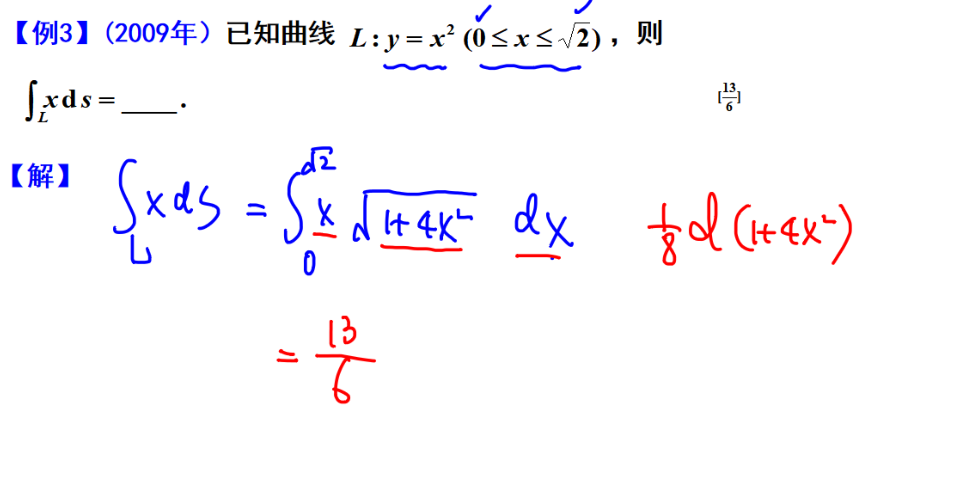 【例3】(2009年) 已知曲线 L : y = x² (0 ≤ x ≤ √2) ，则
∫_L x d s = ____ . [13/6]
【解】 ∫_L x ds = ∫_0^√2 x √(1+4x²) dx 1/8 d(1+4x²)
= 13/6